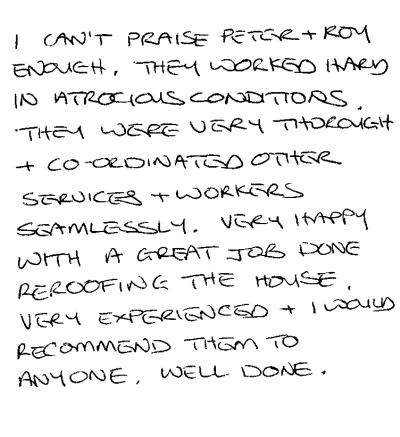 I CAN'T PRAISE PETER + ROY
ENOUGH. THEY WORKED HARD
IN ATROCIOUS CONDITIONS.
THEY WERE VERY THOROUGH
+ CO-ORDINATED OTHER
SERVICES + WORKERS
SEAMLESSLY. VERY HAPPY
WITH A GREAT JOB DONE
REROOFING THE HOUSE.
VERY EXPERIENCED + I WOULD
RECOMMEND THEM TO
ANYONE. WELL DONE.